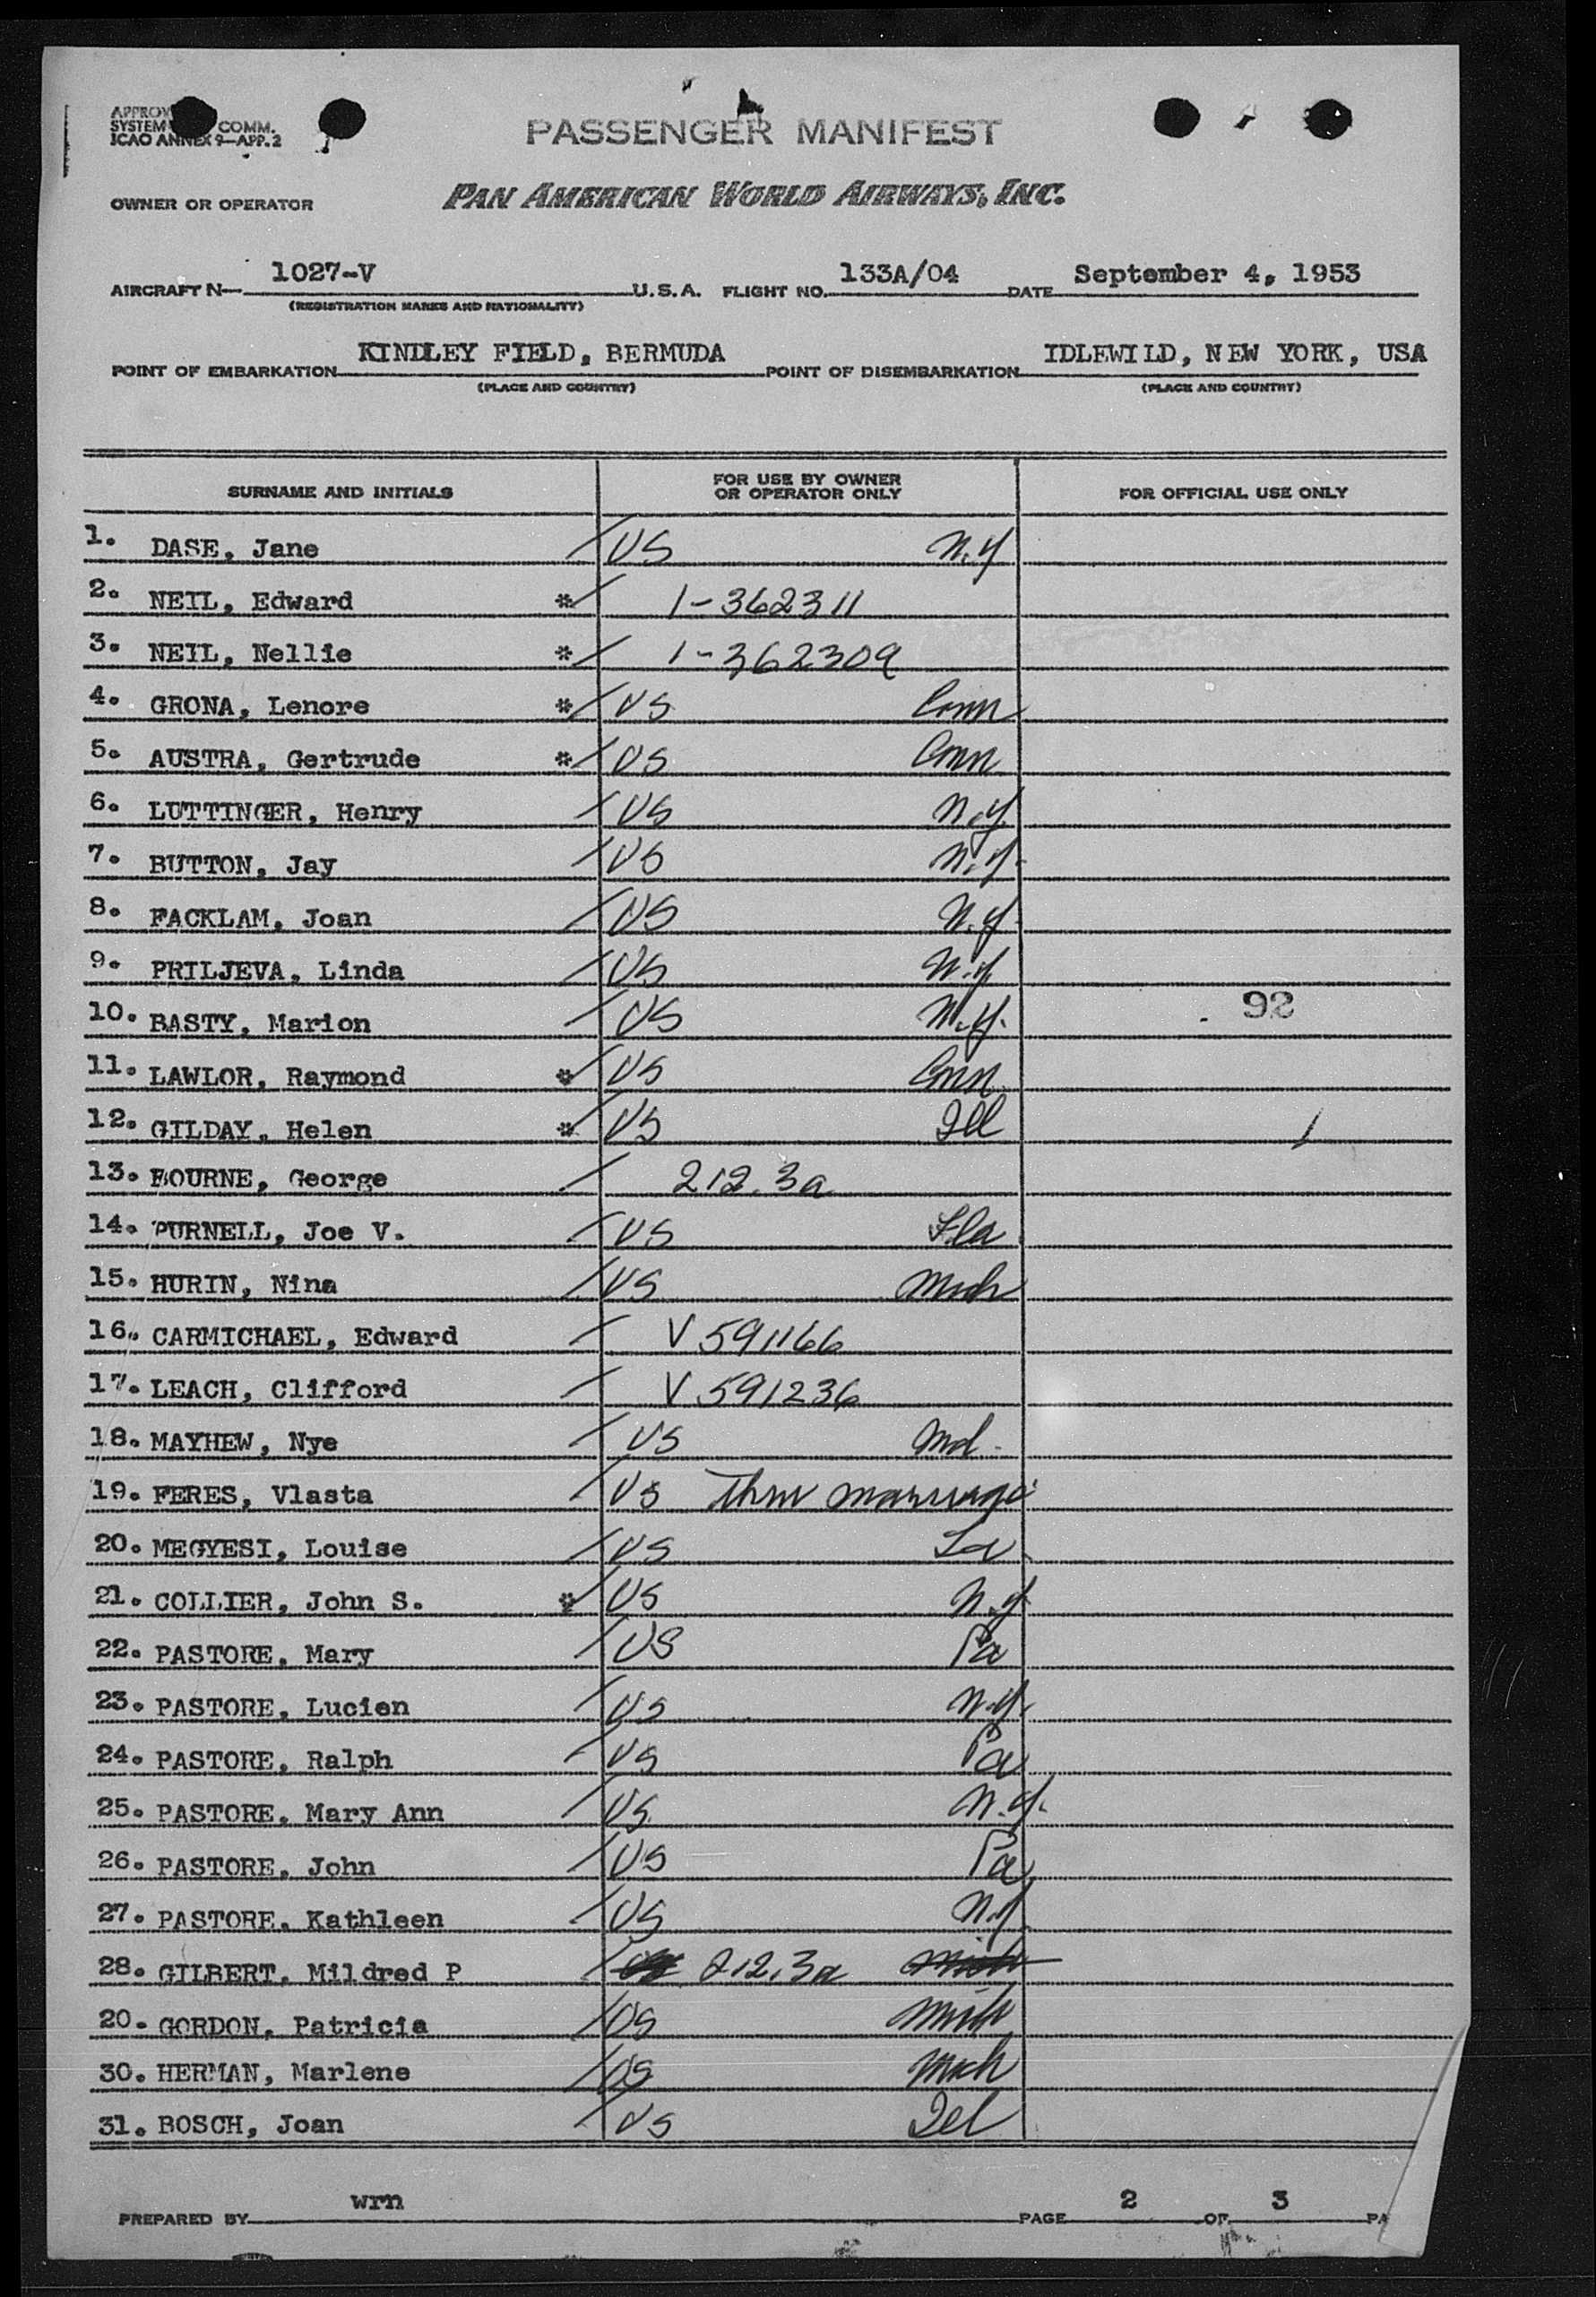 SYSTEM COMM.
ICAO ANNEX 9—APP. 2
PASSENGER MANIFEST
OWNER OR OPERATOR PAN AMERICAN WORLD AIRWAYS, INC.
AIRCRAFT N— 1027-V U.S.A. FLIGHT NO. 133A/04 DATE September 4, 1953
(REGISTRATION MARKS AND NATIONALITY)
POINT OF EMBARKATION KINDLEY FIELD, BERMUDA POINT OF DISEMBARKATION IDLEWILD, NEW YORK, USA
(PLACE AND COUNTRY) (PLACE AND COUNTRY)
SURNAME AND INITIALS FOR USE BY OWNER OR OPERATOR ONLY FOR OFFICIAL USE ONLY
1. DASE, Jane / US N.Y
2. NEIL, Edward * / 1-362311
3. NEIL, Nellie * / 1-362309
4. GRONA, Lenore * / US Conn
5. AUSTRA, Gertrude * / US Conn
6. LUTTINGER, Henry / US N.Y.
7. BUTTON, Jay / US N.Y.
8. FACKLAM, Joan / US N.Y.
9. PRILJEVA, Linda / US N.Y.
10. BASTY, Marion / US N.Y. 92
11. LAWLOR, Raymond * / US Conn.
12. GILDAY, Helen * / US Ill /
13. BOURNE, George / 212.3a
14. PURNELL, Joe V. / US Fla
15. HURIN, Nina / US Mich
16. CARMICHAEL, Edward / V 591166
17. LEACH, Clifford / V 591236
18. MAYHEW, Nye / US Md.
19. FERES, Vlasta / US Thru marriage
20. MEGYESI, Louise / US La
21. COLLIER, John S. * / US N.Y
22. PASTORE, Mary / US Pa
23. PASTORE, Lucien / US N.Y.
24. PASTORE, Ralph / US Pa
25. PASTORE, Mary Ann / US N.Y.
26. PASTORE, John / US Pa
27. PASTORE, Kathleen / US N.Y
28. GILBERT, Mildred P / 212.3a Mich
20. GORDON, Patricia / US Mich
30. HERMAN, Marlene / US Mich
31. BOSCH, Joan / US Del
PREPARED BY wrn PAGE 2 OF 3